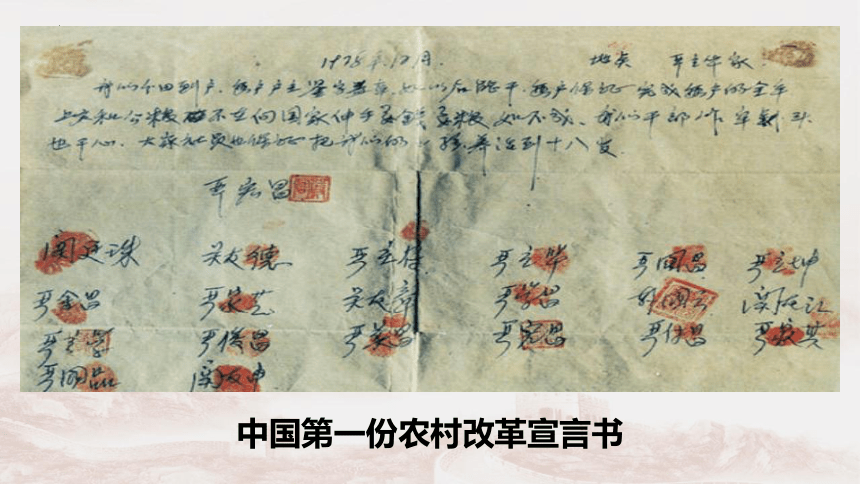 1978年12月. 地点 严立华家.
我们分田到户.每户户主签字盖章.如以后能干.每户保证完成每户的全年
上交和公粮 不在向国家伸手要钱要粮 如不成.我们干部作牢剎头
也干心.大家社员也保证把我们的小孩养活到十八岁.
严宏昌
关廷珠 关友德 严立符 严立华 严国昌 严立坤
严金昌 严家芝 关友章 严学昌 韩国云 关友江
严立学 严俊昌 严美昌 严宏昌 严付昌 严家其
严国品 关友申
中国第一份农村改革宣言书